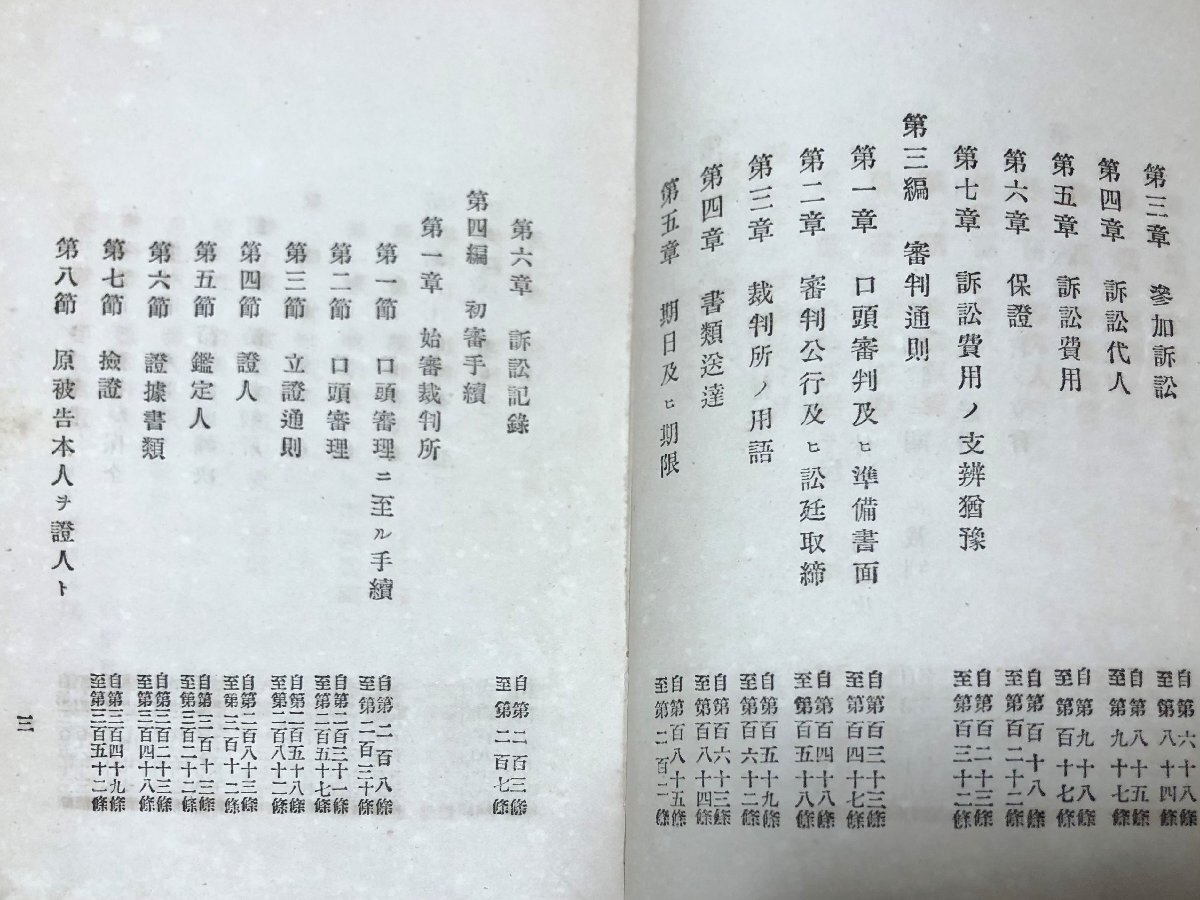 第三章　參加訴訟　自第六十八條至第八十四條
第四章　訴訟代人　自第八十五條至第九十七條
第五章　訴訟費用　自第九十八條至第百十七條
第六章　保證　自第百十八條至第百二十二條
第七章　訴訟費用ノ支辨猶豫　自第百二十三條至第百三十二條
第三編　審判通則
第一章　口頭審判及ヒ準備書面　自第百三十三條至第百四十七條
第二章　審判公行及ヒ訟廷取締　自第百四十八條至第百五十八條
第三章　裁判所ノ用語　自第百五十九條至第百六十二條
第四章　書類送達　自第百六十三條至第百八十四條
第五章　期日及ヒ期限　自第百八十五條至第二百二條
第六章　訴訟記錄　自第二百三條至第二百七條
第四編　初審手續
第一章　始審裁判所
第一節　口頭審理ニ至ル手續　自第二百八條至第二百三十條
第二節　口頭審理　自第二百三十一條至第二百五十七條
第三節　立證通則　自第二百五十八條至第二百八十二條
第四節　證人　自第二百八十三條至第三百十二條
第五節　鑑定人　自第三百十三條至第三百二十二條
第六節　證據書類　自第三百二十三條至第三百四十八條
第七節　撿證　自第三百四十九條至第三百五十二條
第八節　原被告本人ヲ證人ト
三